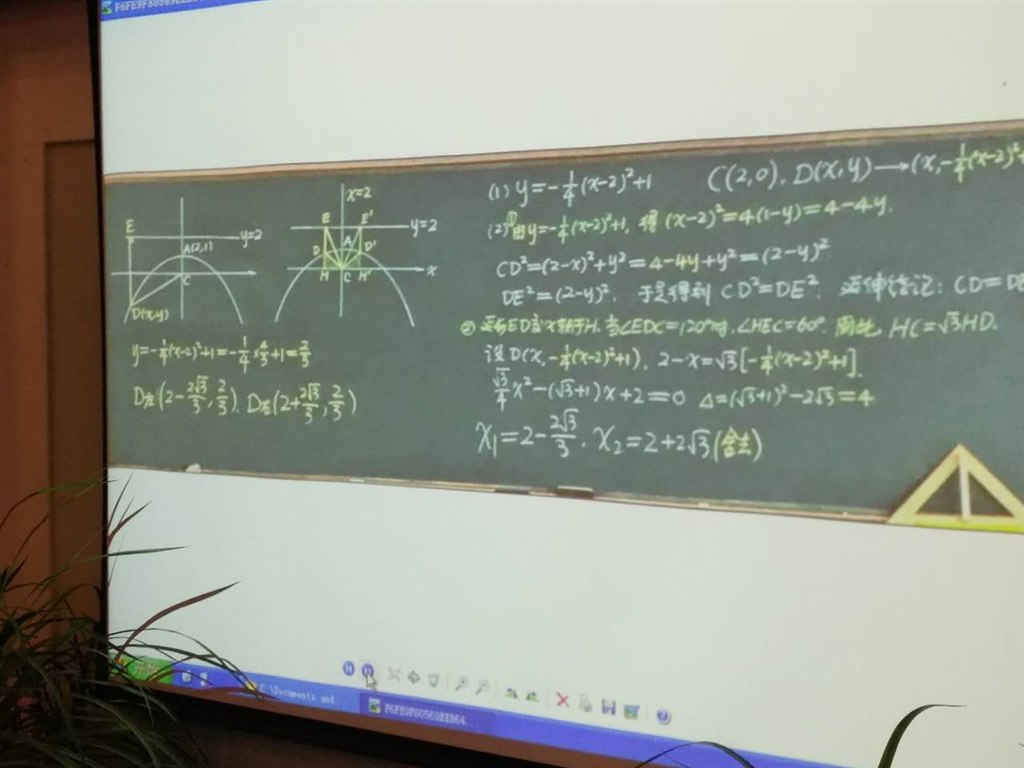 F6FE9F80569EE
E
y=2
A(2,1)
C
D(x,y)
x=2
E E'
y=2
D A D'
H C H'
x
y=-1/4(x-2)²+1=-1/4×4/3+1=2/3
D左(2-2√3/3, 2/3). D右(2+2√3/3, 2/3)
(1) y=-1/4(x-2)²+1 C(2,0). D(x,y)→(x,-1/4(x-2)²+
(2)①由y=-1/4(x-2)²+1, 得 (x-2)²=4(1-y)=4-4y.
CD²=(2-x)²+y²=4-4y+y²=(2-y)².
DE²=(2-y)². 于是得到 CD²=DE². 延伸结记: CD=DE
② 延长ED交x轴于H. 当∠EDC=120°时, ∠HEC=60°. 因此 HC=√3HD.
设D(x,-1/4(x-2)²+1). 2-x=√3[-1/4(x-2)²+1].
√3/4x²-(√3+1)x+2=0 Δ=(√3+1)²-2√3=4
x₁=2-2√3/3. x₂=2+2√3(舍去)
开始
C:\Documents and
F6FE9F80569EE864